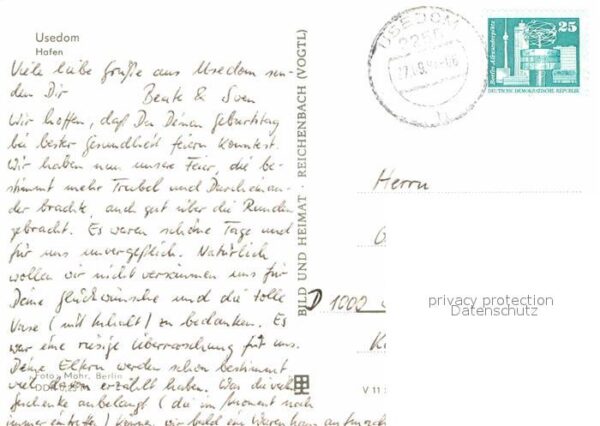 Usedom
Hafen
Viele liebe Grüße aus Usedom sen-
den Dir Beate & Sven
Wir hoffen, daß Du Deinen Geburtstag
bei bester Gesundheit feiern konntest.
Wir haben nun unsere Feier, die be-
stimmt mehr Trubel und Durcheinan-
der brachte, auch gut über die Runden
gebracht. Es waren schöne Tage und
für uns unvergeßlich. Natürlich
wollen wir nicht versäumen uns für
Deine Glückwünsche und die tolle
Vase (mit Inhalt) zu bedanken. Es
war eine riesige Überraschung für uns.
Deine Eltern werden schon bestimmt
viel davon erzählt haben. Was die vielen
Foto: Mohr, Berlin
Geschenke anbelangt (die im Moment noch
immer eintreffen) können wir bald ein Warenhaus aufmachen
BILD UND HEIMAT · REICHENBACH (VOGTL)
USEDOM
2255
25
Berlin, Alexanderplatz
DEUTSCHE DEMOKRATISCHE REPUBLIK
Herrn
D 1000
privacy protection
Datenschutz
V 11